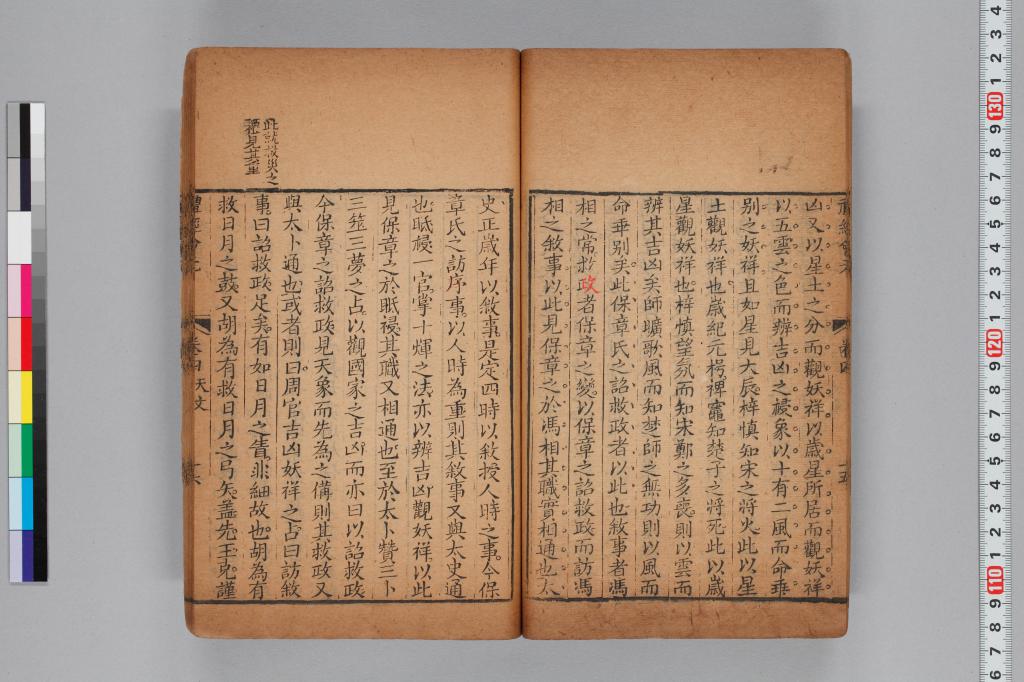 凶又以星土之分而觀妖祥以歲星所居而觀妖祥
以五雲之色而辨吉凶之祲象以十有二風而命乖
别之妖祥且如星見大辰梓慎知宋之將火此以星
土觀妖祥也歲紀元枵裨竈知楚子之將死此以歲
星觀妖祥也梓慎望氛而知宋鄭之多喪則以雲而
辨其吉凶矣師曠歌風而知楚師之無功則以風而
命乖别矣此保章氏之詔救政者以此也敘事者馮
相之常救政者保章之變以保章之詔救政而訪馮
相之敘事以此見保章之於馮相其職實相通也太
史正歲年以敘事是定四時以敘授人時之事今保
章氏之訪序事以人時為重則其敘事又與太史通
也眂祲一官掌十煇之法亦以辨吉凶觀妖祥以此
見保章之於眂祲其職又相通也至於太卜贊三卜
三筮三夢之占以觀國家之吉凶而亦曰以詔救政
今保章之詔救政見天象而先為之備則其救政又
與太卜通也或者則曰周官吉凶妖祥之占曰訪敘
事曰詔救政足矣有如日月之眚非細故也胡為有
救日月之鼓又胡為有救日月之弓矢蓋先王克謹
此就救災之
禮見其重
卷四 天文
卷四